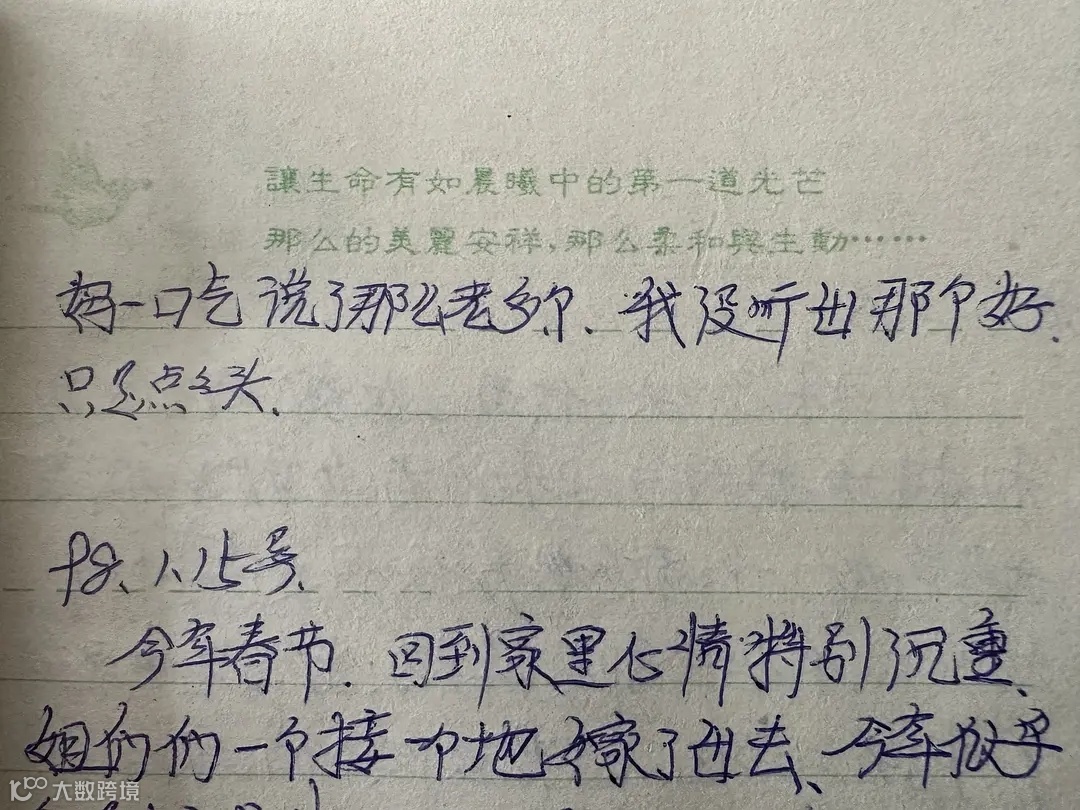 讓生命有如晨曦中的第一道光芒
那么的美麗安祥,那么柔和與生動……
一口气说了那么老多个、我没听出那个好.
只是点点头.
98、1、15号、
今年春节.回到家里心情特别沉重、
姐们们一个接一个地嫁了出去、今年似乎
大数跨境